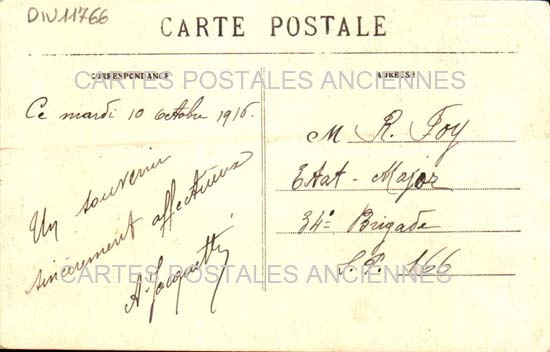 DIV11766
CARTE POSTALE
CORRESPONDANCE
ADRESSE
CARTES POSTALES ANCIENNES
Ce mardi 10 octobre 1916.
Un souvenir
sincèrement affectueux
M R. Foy
Etat-Major
34e Brigade
S.P. 166
CARTES POSTALES ANCIENNES